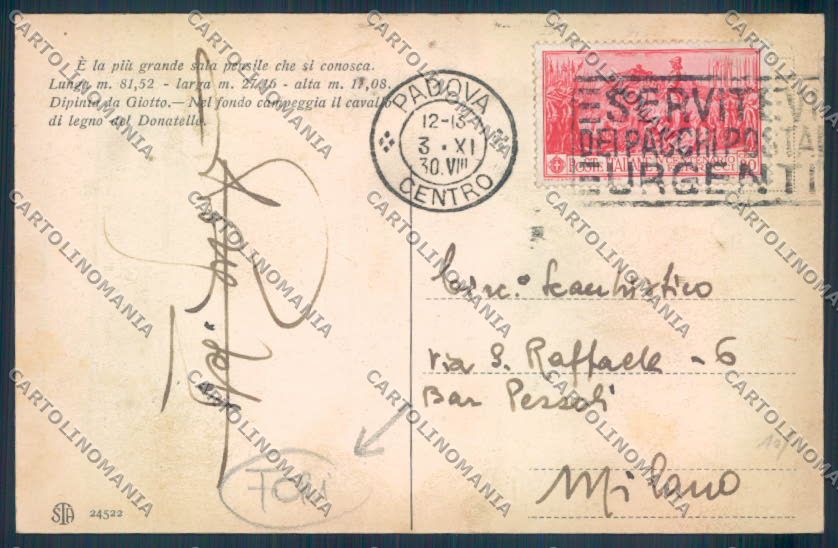 È la più grande sala pensile che si conosca.
Lunga m. 81,52 - larga m. 27,16 - alta m. 17,08.
Dipinta da Giotto. — Nel fondo campeggia il cavallo
di legno del Donatello.
PADOVA
12-13
3 · XI
30.VIII
CENTRO
SERVITEVI
DEI PACCHI POSTALI
URGENTI
POSTE ITALIANE
Circ. Scacchistico
via S. Raffaele - 6
Bar Pessoli
Milano
STA 24522
CARTOLINOMANIA